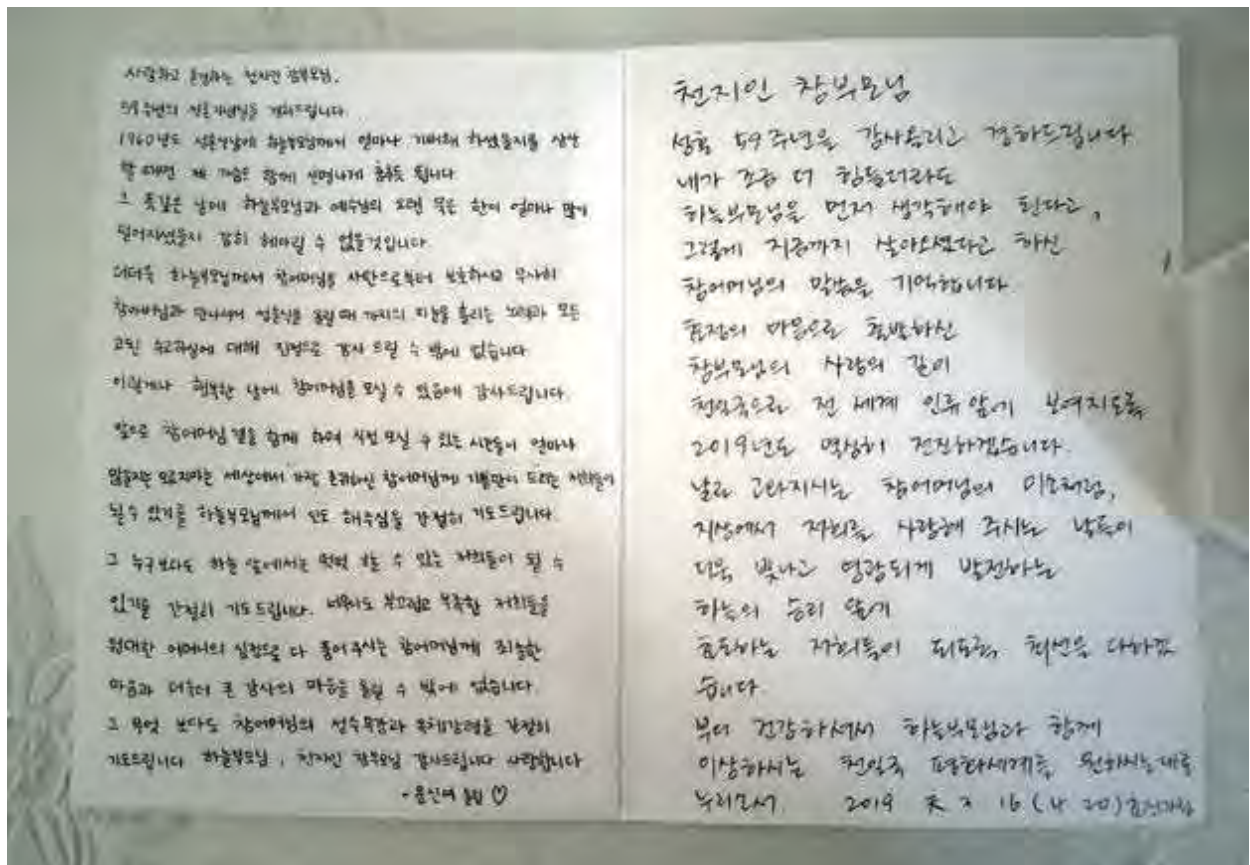 사랑하고 존경하는 천지인 참부모님.
59주년의 성혼기념일을 경하드립니다.
1960년도 성혼식날에 하늘부모님께서 얼마나 기뻐해 하셨을지를 상상
할 때면 제 가슴은 함께 신명나게 춤추듯 뜁니다
그 뜻깊은 날에 하늘부모님과 예수님의 오랜 묵은 한이 얼마나 많이
풀어지셨을지 감히 헤아릴 수 없을것입니다.
더더욱 하늘부모님께서 참어머님을 사탄으로부터 보호하시고 무사히
참아버님과 만나셔서 성혼식을 올릴 때 까지의 피눈물 흘리는 노력과 모든
고된 수고하심에 대해 진정으로 감사 드릴 수 밖에 없습니다
이렇게나 행복한 날에 참어머님을 모실 수 있음에 감사드립니다.
앞으로 참어머님 곁을 함께 하여 직접 모실 수 있는 시간들이 얼마나
많을지는 모르지마는 세상에서 가장 존귀하신 참어머님께 기쁨만이 드리는 저희들이
될 수 있기를 하늘부모님께서 인도 해주심을 간절히 기도드립니다.
그 누구보다도 하늘 앞에서는 떳떳 할 수 있는 저희들이 될 수
있기를 간절히 기도드립니다. 너무나도 부끄럽고 부족한 저희들을
위대한 어머니의 심정으로 다 품어주시는 참어머님께 죄송한
마음과 더불어 큰 감사의 마음을 올릴 수 밖에 없습니다.
그 무엇 보다도 참어머님의 성수무강과 옥체강령을 간절히
기도드립니다 하늘부모님, 천지인 참부모님 감사드립니다 사랑합니다
- 문신여 올림 ♡
천지인 참부모님
성혼 59주년을 감사올리고 경하드립니다
내가 조금 더 힘들더라도
하늘부모님을 먼저 생각해야 된다고,
그렇게 지금까지 살아오셨다고 하신
참어머님의 말씀을 기억합니다.
효정의 마음으로 출발하신
참부모님의 사랑의 길이
천일국으로 전 세계 인류 앞에 보여지도록
2019년도 열심히 전진하겠습니다.
날로 고와지시는 참어머님의 미소처럼,
지상에서 저희를 사랑해 주시는 날들이
더욱 빛나고 영광되게 발전하는
하늘의 승리 앞에
효도하는 저희들이 되도록 최선을 다하겠
습니다
부디 건강하셔서 하늘부모님과 함께
이상하시는 천일국 평화세계를 원하시는대로
누리소서 2019 天 3 16 (4 20)